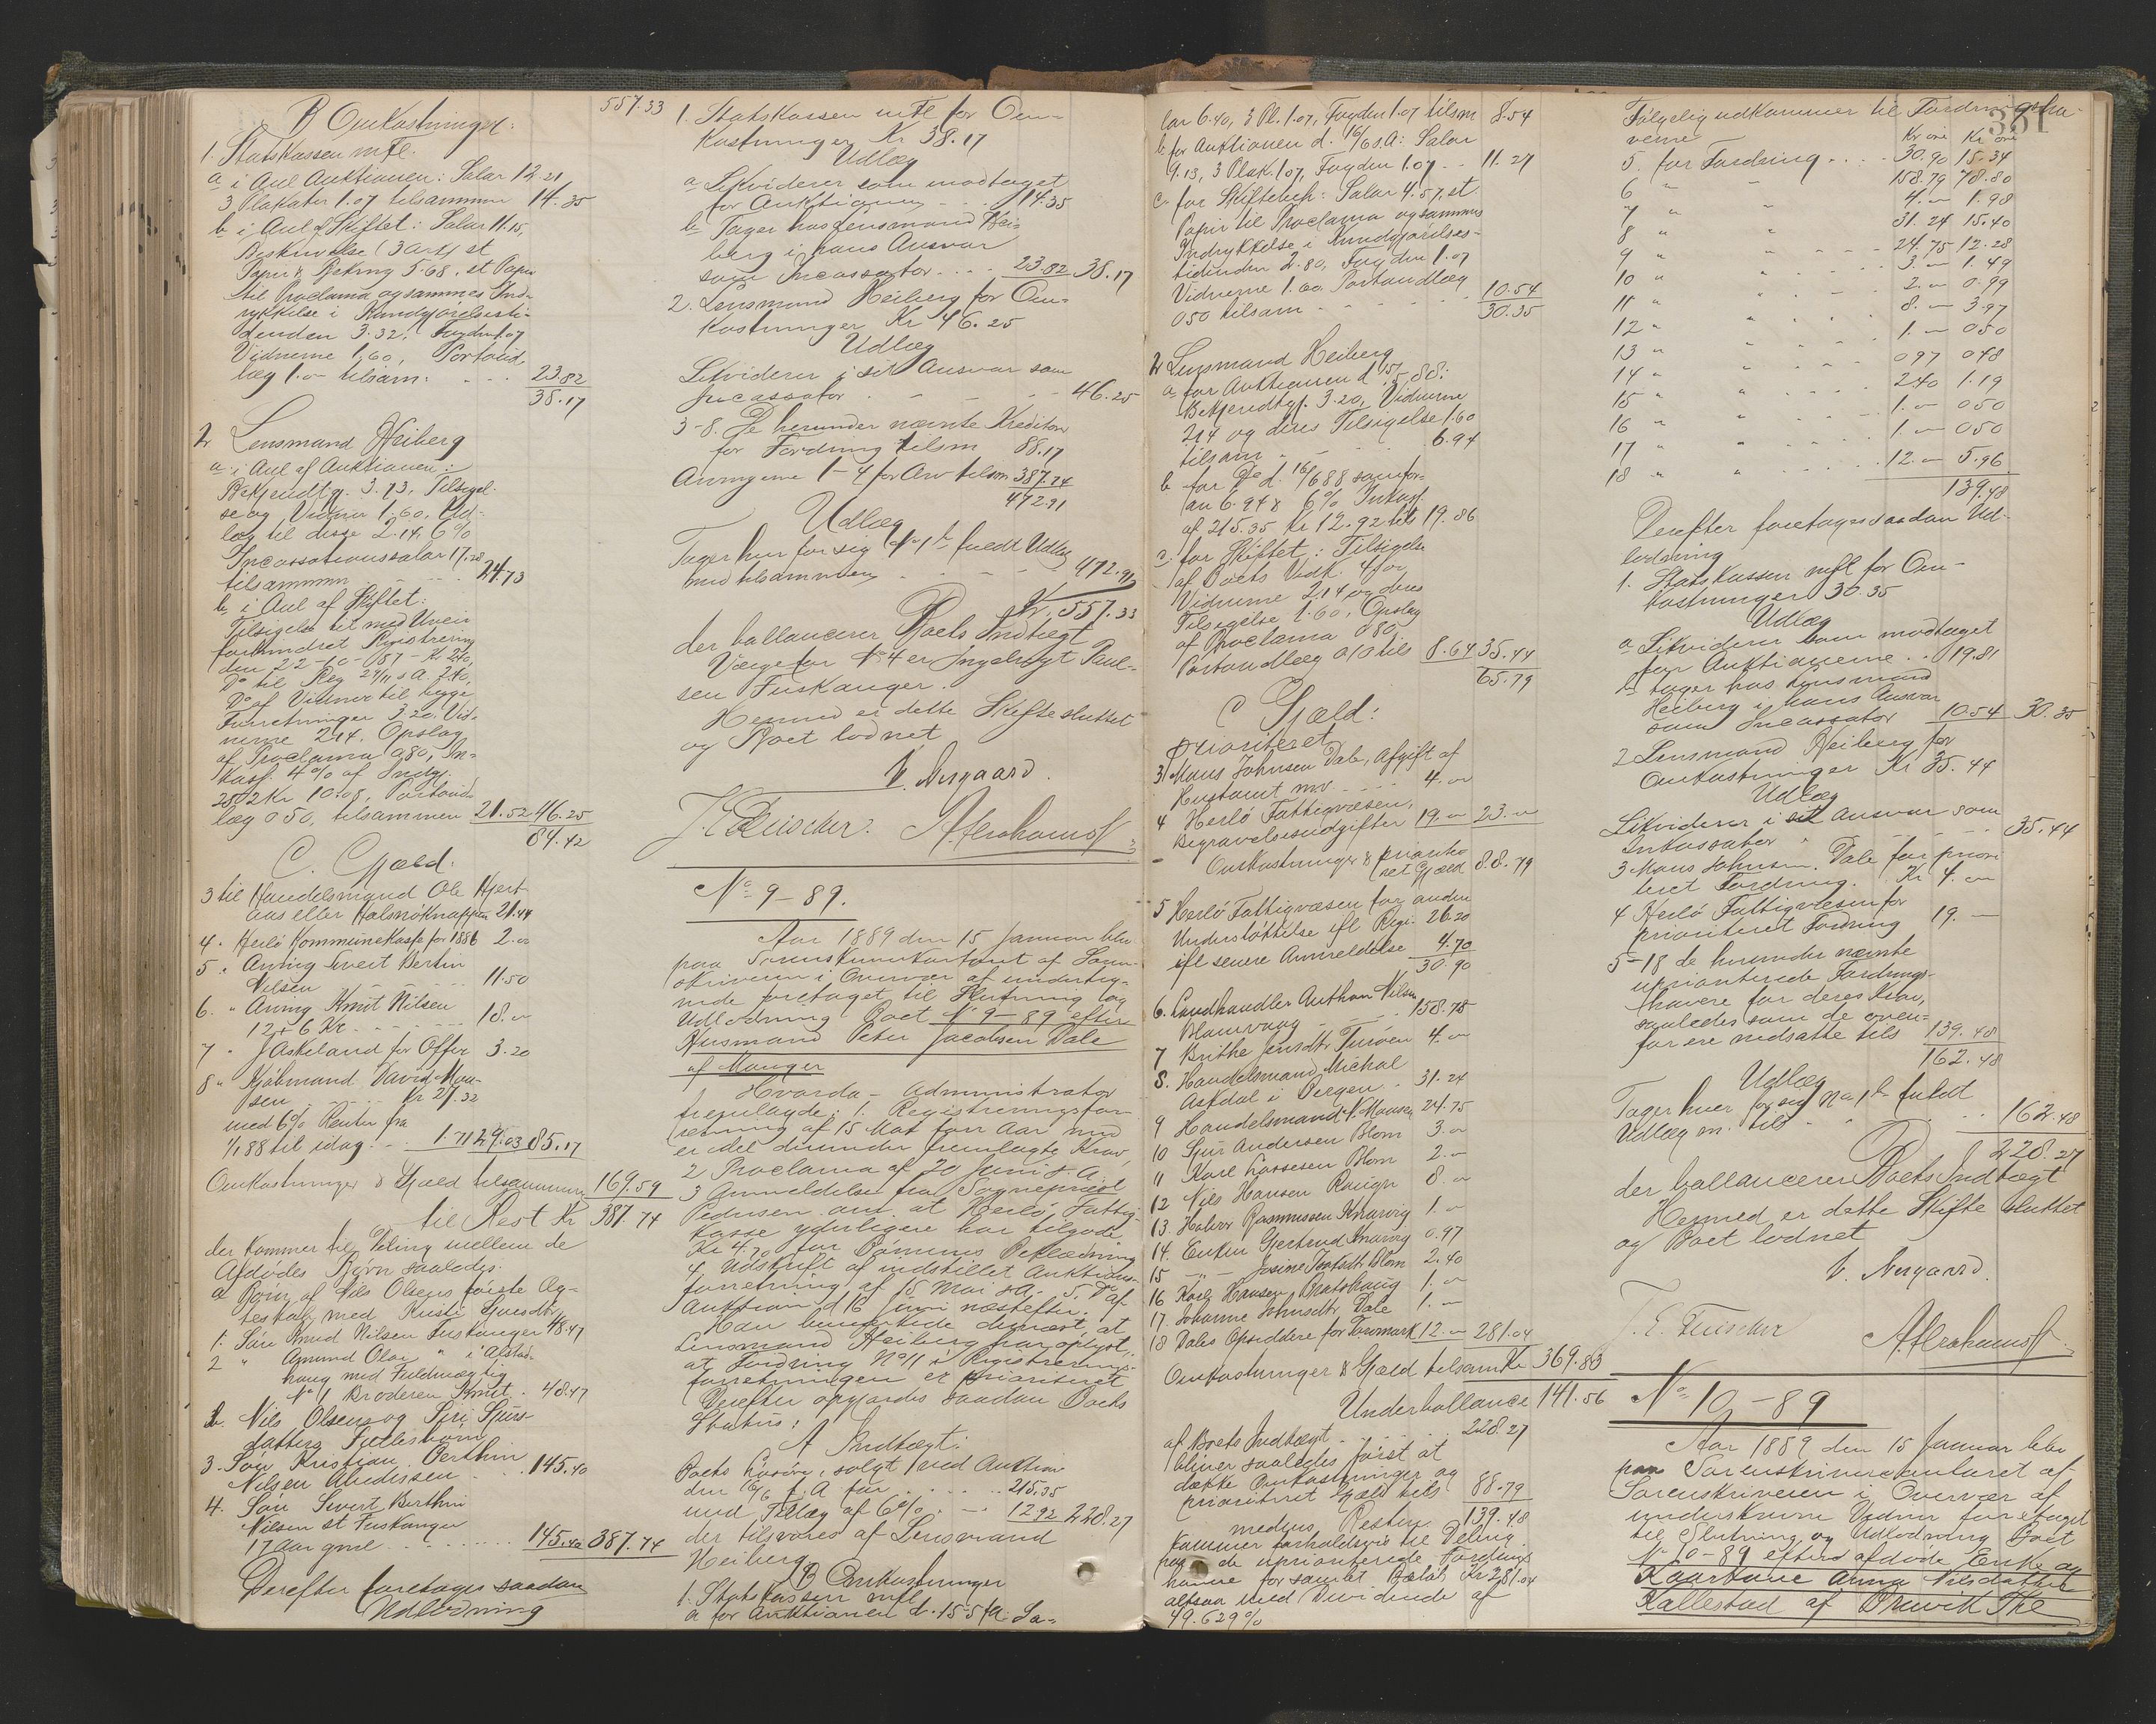 B Omkostninger: 557.33
1. Statskassen mfl.
a i Anl Auktionen: Salar 12.21,
3 Plakater 1.07 tilsammen 14.35
b i Anl af Skiftet: Salar 11.15,
Beskrivelse (3 Ark) st
Papir & 5.68, st Papir
til Proclama og sammes Ind-
rykkelse i Kundgjørelsesti-
denden 3.32, Fogden 1.07
Vidnerne 1.60, Portoud-
læg 1.00 tilsam: 23.82
38.17
2 Lensmand Heiberg
a i Anl af Auktionen:
Bekjendtg. 3.73, Tilsigel-
se og Vidner 1.60, Ud-
læg til disse 2.14, 6%
Incassationssalar 17.28
tilsammen 24.73
b i Anl af Skiftet:
Tilsigelse til med Uveir
forhindret Registrering
den 22-10-87 - Kr 2.40,
Do til Reg 29/11 s A. 2.40,
Do af Vidner til begge
Forretninger 3.20, Vid-
nerne 2.14. Opslag
af Proclama 0.80, In-
kass. 4% af Indg.
252 Kr 10.08, Portoud-
læg 0.50, tilsammen 21.52 46.25
84.42
C. Gjæld.
3 til Handelsmand Ole Hjert-
aas eller Holsnøknappen 21.44
4. Herlø Kommunekasse for 1886 2.00
5 " Anving Sivert Bertin
Nilsen 11.50
6. " Anving Knut Nilsen
12 + 6 Kr 18.00
7 " J Askeland for Offer 3.20
8 " Kjøbmand David Mon-
sen Kr 27.32
med 6% Renter fra
1/1 88 til idag 1.71 29.03 85.17
Omkostninger & Gjæld tilsammen 169.59
til Rest Kr 387.74
der kommer til Deling mellem de
Afdødes Børn saaledes:
a Børn af Nils Olsens første Æg-
teskab med Kristi Sjursdtr
1. Søn Knud Nilsen Fuskanger 48.47
2 " Amund Olai " i Alstad-
haug med Fuldmægtig
No 1 Broderen Knut 48.47
b. Nils Olsens og Siri Sjurs-
datters Fællesbørn
3. Søn Kristian Berthin
Nilsen 145.40
4. Søn Sivert Berthin
Nilsen st Fuskanger
17 Aar gml 145.40 387.74
Derefter foretages saadan
Udlodning
1. Statskassen mfl for Om-
kostninger Kr 38.17
Udlæg
a Likviderer som modtaget
for Auktionen 14.35
b Tager hos Lensmand Hei-
berg i hans Ansvar
som Incassator 23.82 38.17
2. Lensmand Heiberg for Om-
kostninger Kr 46.25
Udlæg
Likviderer i sit Ansvar som
Incassator 46.25
3-8. De herunder nævnte Kreditorer
for Fordring tilsm 85.17
Arvingerne 1-4 for Arv tilsm 387.74
472.91
Udlæg
Tager hver for sig No 1 b fuldt Udlæg
med tilsammen 472.91
Kr. 557.33
der ballancerer Boets Indtægt
Værge for No 4 er Ingebrigt Paul-
sen Fuskanger.
Hermed er dette Skifte sluttet
og Boet lodnet
V. Nergaard.
T. E. Fuischer. A. Abrahamsen
No 9-89.
Aar 1889 den 15 Januar blev
paa Sorenskriverkontoret af Soren-
skriveren i Overvær af underteg-
nede foretaget til Slutning og
Udlodning Boet No 9-89 efter
Husmand Peter Jacobsen Dale
af Manger
Hvorda - Administrator
fremlagde: 1. Registreringsfor-
retning af 15 Mai forr Aar med
en del derunder fremlagte Krav,
2 Proclama af 20 Juni s. A.
3 Anmeldelse fra Sogneprest
Pedersen ant. at Herlø Fattig-
kasse yderligere har tilgode
Kr 4.70 for Børnenes Beklædning
4, Udskrift af indstillet Auktions-
forretning af 15 Mai s A. 5. Do af
Auktion d 16 Juni næstefter.
Han bemærkede dernæst, at
Lensmand Heiberg har oplyst,
at Fordring No 11 i Registrerings-
forretningen er prioriteret
Derefter opgjordes saadan Boets
Status:
A Indtægt:
Boets Løsøre, solgt ved Auktion
den 16/6 f. A for 215.35
med Tillæg af 6% 12.92 228.27
der tilsvares af Lensmand
Heiberg
B Omkostninger
1. Statskassen mfl
a for Auktionen d. 15-5 f A: Sa-
lar 6.40, 3 Pl. 1.07, Fogden 1.07 tilsm 8.54
b for Auktionen d. 16/6 s. A: Salar
9.13, 3 Plak. 1.07, Fogden 1.07 11.27
c for Skiftebeh: Salar 4.57, st
Papir til Proclama og sammes
Indrykkelse i Kundgjørelses-
tidenden 2.80, Fogden 1.07
Vidnerne 1.60. Portoudlæg
0.50 tilsam 10.54
30.35
2 Lensmand Heiberg
a for Auktionen d 15/5 88:
Bekjendtg. 3.20, Vidnerne
2.14 og deres Tilsigelse 1.60
tilsam 6.94
b for Do d. 16/6 88 som for-
an 6.94 & 6% Inkass.
af 215.35 Kr 12.92 tils 19.86
c for Skiftet: Tilsigelse
af Boets Vedk. 4.00,
Vidnerne 2.14 og deres
Tilsigelse 1.60, Opslag
af Proclama 0.80
Portoudlæg 0.10 tils 8.64 35.44
65.79
C Gjæld:
prioriteret
3 Mons Johnsen Dale, Afgift af
Hustomt mv 4.00
4 Herlø Fattigvæsen,
Begravelsesudgifter 19.00 23.00
Omkostninger & priorite-
ret Gjæld 88.79
5 Herlø Fattigvæsen for anden
Understøttelse ifl Regi. 26.20
ifl senere Anmeldelse 4.70
30.90
6. Landhandler Anthon Nilsen
Blomvaag 158.78
7 Brithe Jensdtr Turøen 4.00
8. Handelsmand Michal
Askdal i Bergen 31.24
9 Handelsmand N. Monsen 24.75
10 Sjur Andersen Blom 3.00
11 Karl Lassesen Blom 2.00
12 Nils Hansen 8.00
13. Halvor Rasmussen Knarvig 1.00
14. Enken Gjertrud Knarvig 0.97
15 " Josine Blom 2.40
16 Karl Hansen 1.00
17. Johanne Johnsdtr Dale 1.00
18 Dales Opsiddere for 12.00 281.04
Omkostninger & Gjæld tilsam Kr 369.83
Underballance 141.56
af Boets Indtægt 228.27
bliver saaledes først at
dække Omkostninger og
prioriteret Gjæld tils 88.79
medens Resten 139.48
kommer forholdsvis til Deling
paa de uprioriterede Fordrings-
havere for samlet Beløb Kr 281.04
altsaa med Dividende af
49.629%
381
Følgelig udkommer til Fordringsha-
verne Kr øre Kr øre
5. for Fordring 30.90 15.34
6 " " 158.79 78.80
7 " " 4.00 1.98
8 " " 31.24 15.40
9 " " 24.75 12.28
10 " " 3.00 1.49
11 " " 2.00 0.99
12 " " 8.00 3.97
13 " " 1.00 0.50
14 " " 0.97 0.48
15 " " 2.40 1.19
16 " " 1.00 0.50
17 " " 1.00 0.50
18 " " 12.00 5.96
139.48
Derefter foretages saadan Ud-
lodning
1. Statskassen mfl for Om-
kostninger 30.35
Udlæg
a Likviderer som modtaget
for Auktionerne 19.81
b tager hos Lensmand
Heiberg i hans Ansvar
som Incassator 10.54 30.35
2 Lensmand Heiberg for
Omkostninger Kr 35.44
Udlæg
Likviderer i sit Ansvar som
Inkassator 35.44
3 Mons Johnsen Dale for priori-
teret Fordring Kr 4.00
4 Herlø Fattigvæsen for
prioriteret Fordring 19.
5-18 de herunder nævnte
uprioriterede Fordrings-
havere for deres Krav,
saaledes som de oven-
for ere nedsatte tils 139.48
162.48
Udlæg
Tager hver for sig No 1 b fuldt
Udlæg m. tils 162.48
228.27
der ballancerer Boets Indtægt
Hermed er dette Skifte sluttet
og Boet lodnet
V. Nergaard.
T. E. Fuischer A. Abrahamsen
No 10-89
Aar 1889 den 15 Januar blev
paa Sorenskriverkontoret af
Sorenskriveren i Overvær af
underskrevne Vidner foretaget
til Slutning og Udlodning Boet
No 10-89 efter afdøde Enke og
Kaarkone Anna Nilsdatter
Kallestad af